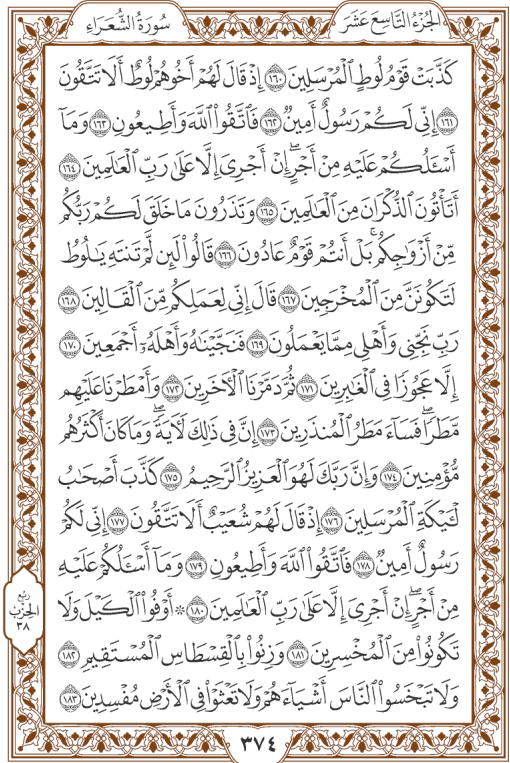 الجُزْءُ التَّاسِعَ عَشَرَ
سُورَةُ الشُّعَرَاءِ
كَذَّبَتْ قَوْمُ لُوطٍ ٱلْمُرْسَلِينَ ١٦٠ إِذْ قَالَ لَهُمْ أَخُوهُمْ لُوطٌ أَلَا تَتَّقُونَ
١٦١ إِنِّي لَكُمْ رَسُولٌ أَمِينٌ ١٦٢ فَٱتَّقُوا۟ ٱللَّهَ وَأَطِيعُونِ ١٦٣ وَمَآ
أَسْـَٔلُكُمْ عَلَيْهِ مِنْ أَجْرٍ ۖ إِنْ أَجْرِىَ إِلَّا عَلَىٰ رَبِّ ٱلْعَـٰلَمِينَ ١٦٤
أَتَأْتُونَ ٱلذُّكْرَانَ مِنَ ٱلْعَـٰلَمِينَ ١٦٥ وَتَذَرُونَ مَا خَلَقَ لَكُمْ رَبُّكُم
مِّنْ أَزْوَٰجِكُم ۚ بَلْ أَنتُمْ قَوْمٌ عَادُونَ ١٦٦ قَالُوا۟ لَئِن لَّمْ تَنتَهِ يَـٰلُوطُ
لَتَكُونَنَّ مِنَ ٱلْمُخْرَجِينَ ١٦٧ قَالَ إِنِّى لِعَمَلِكُم مِّنَ ٱلْقَالِينَ ١٦٨
رَبِّ نَجِّنِى وَأَهْلِى مِمَّا يَعْمَلُونَ ١٦٩ فَنَجَّيْنَـٰهُ وَأَهْلَهُۥٓ أَجْمَعِينَ ١٧٠
إِلَّا عَجُوزًا فِى ٱلْغَـٰبِرِينَ ١٧١ ثُمَّ دَمَّرْنَا ٱلْـَٔاخَرِينَ ١٧٢ وَأَمْطَرْنَا عَلَيْهِم
مَّطَرًا ۖ فَسَآءَ مَطَرُ ٱلْمُنذَرِينَ ١٧٣ إِنَّ فِى ذَٰلِكَ لَـَٔايَةً ۖ وَمَا كَانَ أَكْثَرُهُم
مُّؤْمِنِينَ ١٧٤ وَإِنَّ رَبَّكَ لَهُوَ ٱلْعَزِيزُ ٱلرَّحِيمُ ١٧٥ كَذَّبَ أَصْحَـٰبُ
لْـَٔيْكَةِ ٱلْمُرْسَلِينَ ١٧٦ إِذْ قَالَ لَهُمْ شُعَيْبٌ أَلَا تَتَّقُونَ ١٧٧ إِنِّى لَكُمْ
رَسُولٌ أَمِينٌ ١٧٨ فَٱتَّقُوا۟ ٱللَّهَ وَأَطِيعُونِ ١٧٩ وَمَآ أَسْـَٔلُكُمْ عَلَيْهِ
مِنْ أَجْرٍ ۖ إِنْ أَجْرِىَ إِلَّا عَلَىٰ رَبِّ ٱلْعَـٰلَمِينَ ١٨٠ ۞ أَوْفُوا۟ ٱلْكَيْلَ وَلَا
تَكُونُوا۟ مِنَ ٱلْمُخْسِرِينَ ١٨١ وَزِنُوا۟ بِٱلْقِسْطَاسِ ٱلْمُسْتَقِيمِ ١٨٢
وَلَا تَبْخَسُوا۟ ٱلنَّاسَ أَشْيَآءَهُمْ وَلَا تَعْثَوْا۟ فِى ٱلْأَرْضِ مُفْسِدِينَ ١٨٣
ربع
الحزب
٣٨
٣٧٤